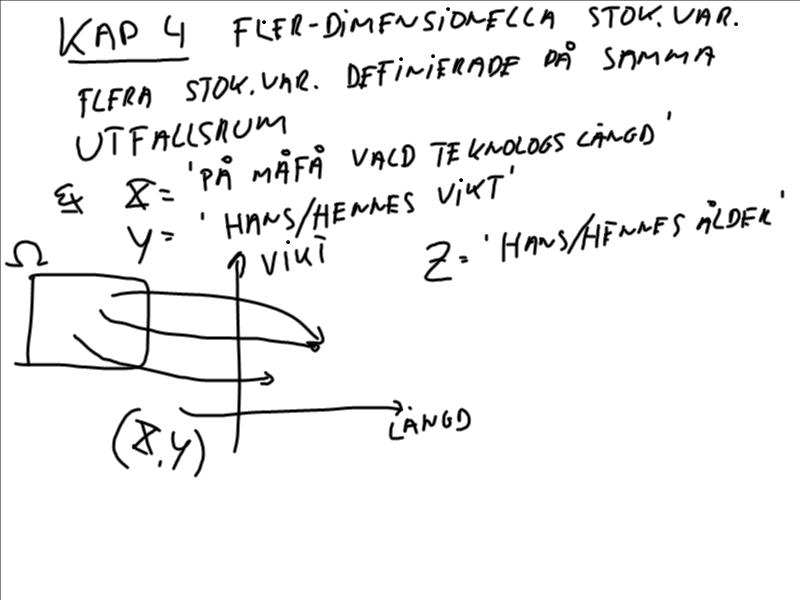 KAP 4 FLER-DIMENSIONELLA STOK.VAR.
FLERA STOK.VAR. DEFINIERADE PÅ SAMMA
UTFALLSRUM
EX X = 'PÅ MÅFÅ VALD TEKNOLOGS LÄNGD'
Y = 'HANS/HENNES VIKT'
Z = 'HANS/HENNES ÅLDER'
Ω
VIKT
LÄNGD
(X,Y)